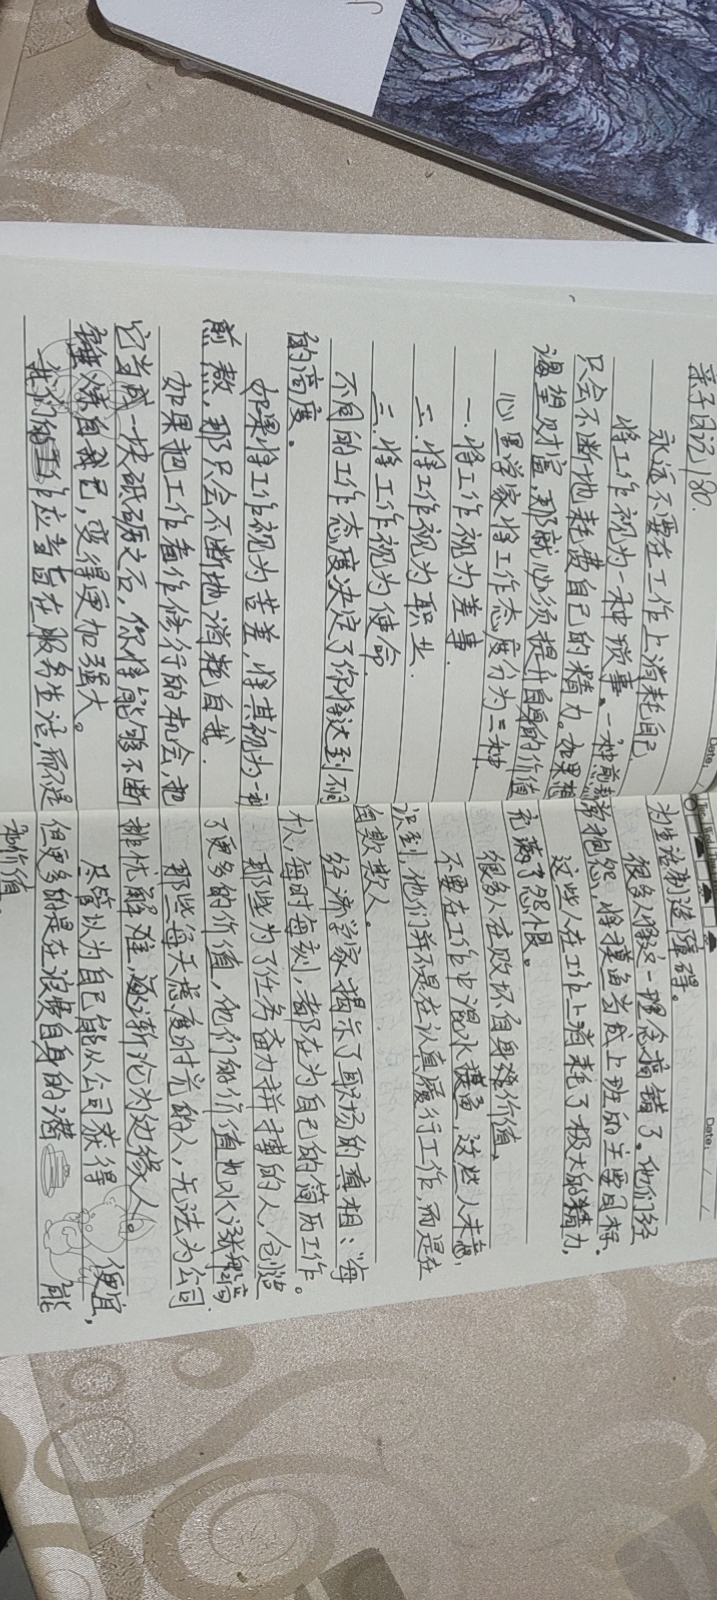 亲子日记180.
永远不要在工作上消耗自己
将工作视为一种琐事。一种煎熬
只会不断地耗费自己的精力。如果想
渴望财富,那就必须提升自身的价值
心里学家将工作态度分为三种
一.将工作视为差事.
二.将工作视为职业.
三.将工作视为使命
不同的工作态度决定了你将达到不同
的高度。
如果将工作视为苦差,将其视为一种
煎熬,那只会不断地消耗自我.
如果把工作看作修行的机会,把
它当成一块砥砺之石,你将能够不断
锤炼自己,变得更加强大。
我们的工作应当旨在服务生活,而不是
Date:
为生活制造障碍。
很多人将这一理念搞错了。他们经
常抱怨,将摸鱼当成上班的主要目标.
这些人在工作上消耗了极大的精力,
充满了怨恨。
很多人在败坏自身价值,
不要在工作中混水摸鱼,这些人未意
识到,他们并不是在认真履行工作,而是在
自欺欺人。
经济学家揭示了职场的真相:"每
个人,每时每刻,都在为自己的简历工作。
那些为了任务奋力拼搏的人,创造
了更多的价值,他们的价值也水涨船高.
那些每天荒废时光的人,无法为公司
排忧解难,逐渐沦为边缘人。
尽管认为自己能从公司获得便宜,
但更多的是在浪费自身的潜能
和价值.
Date: